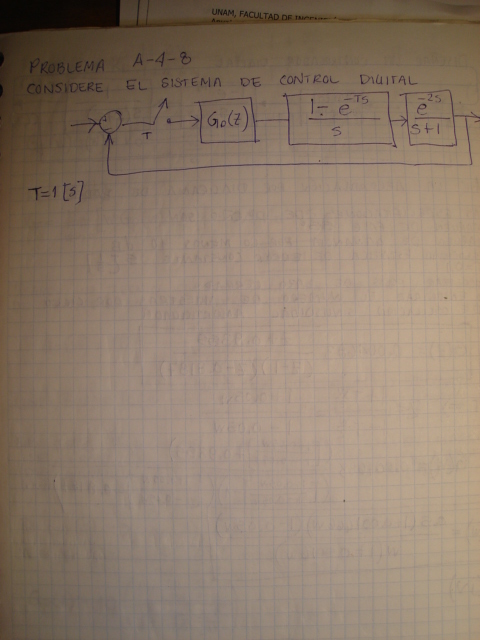 UNAM, FACULTAD DE
PROBLEMA A-4-8
CONSIDERE EL SISTEMA DE CONTROL DIGITAL
T
G_D(Z)
1 - e^-TS
S
e^-2S
S+1
T=1 [S]